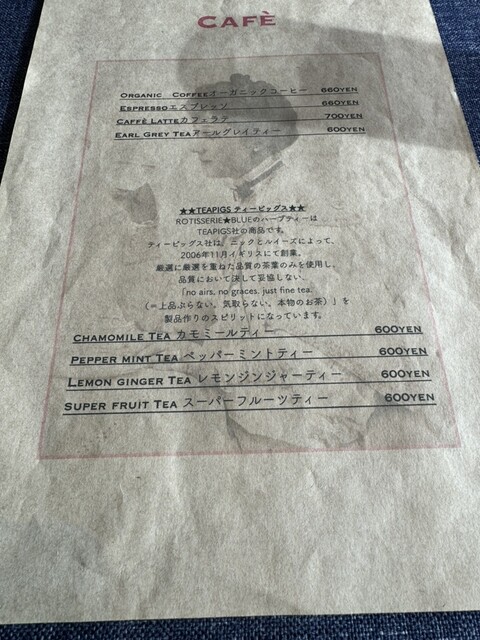 CAFÈ
ORGANIC COFFEEオーガニックコーヒー 660YEN
ESPRESSOエスプレッソ 660YEN
CAFFÈ LATTEカフェラテ 700YEN
EARL GREY TEAアールグレイティー 600YEN
★★TEAPIGS ティーピッグス★★
ROTISSERIE★BLUEのハーブティーは
TEAPIGS社の商品です。
ティーピッグス社は、ニックとルイーズによって、
2006年11月イギリスにて創業。
厳選に厳選を重ねた品質の茶葉のみを使用し、
品質において決して妥協しない、
「no airs, no graces, just fine tea.
(＝上品ぶらない。気取らない。本物のお茶)」を
製品作りのスピリットになっています。
CHAMOMILE TEA カモミールティー 600YEN
PEPPER MINT TEA ペッパーミントティー 600YEN
LEMON GINGER TEA レモンジンジャーティー 600YEN
SUPER FRUIT TEA スーパーフルーツティー 600YEN